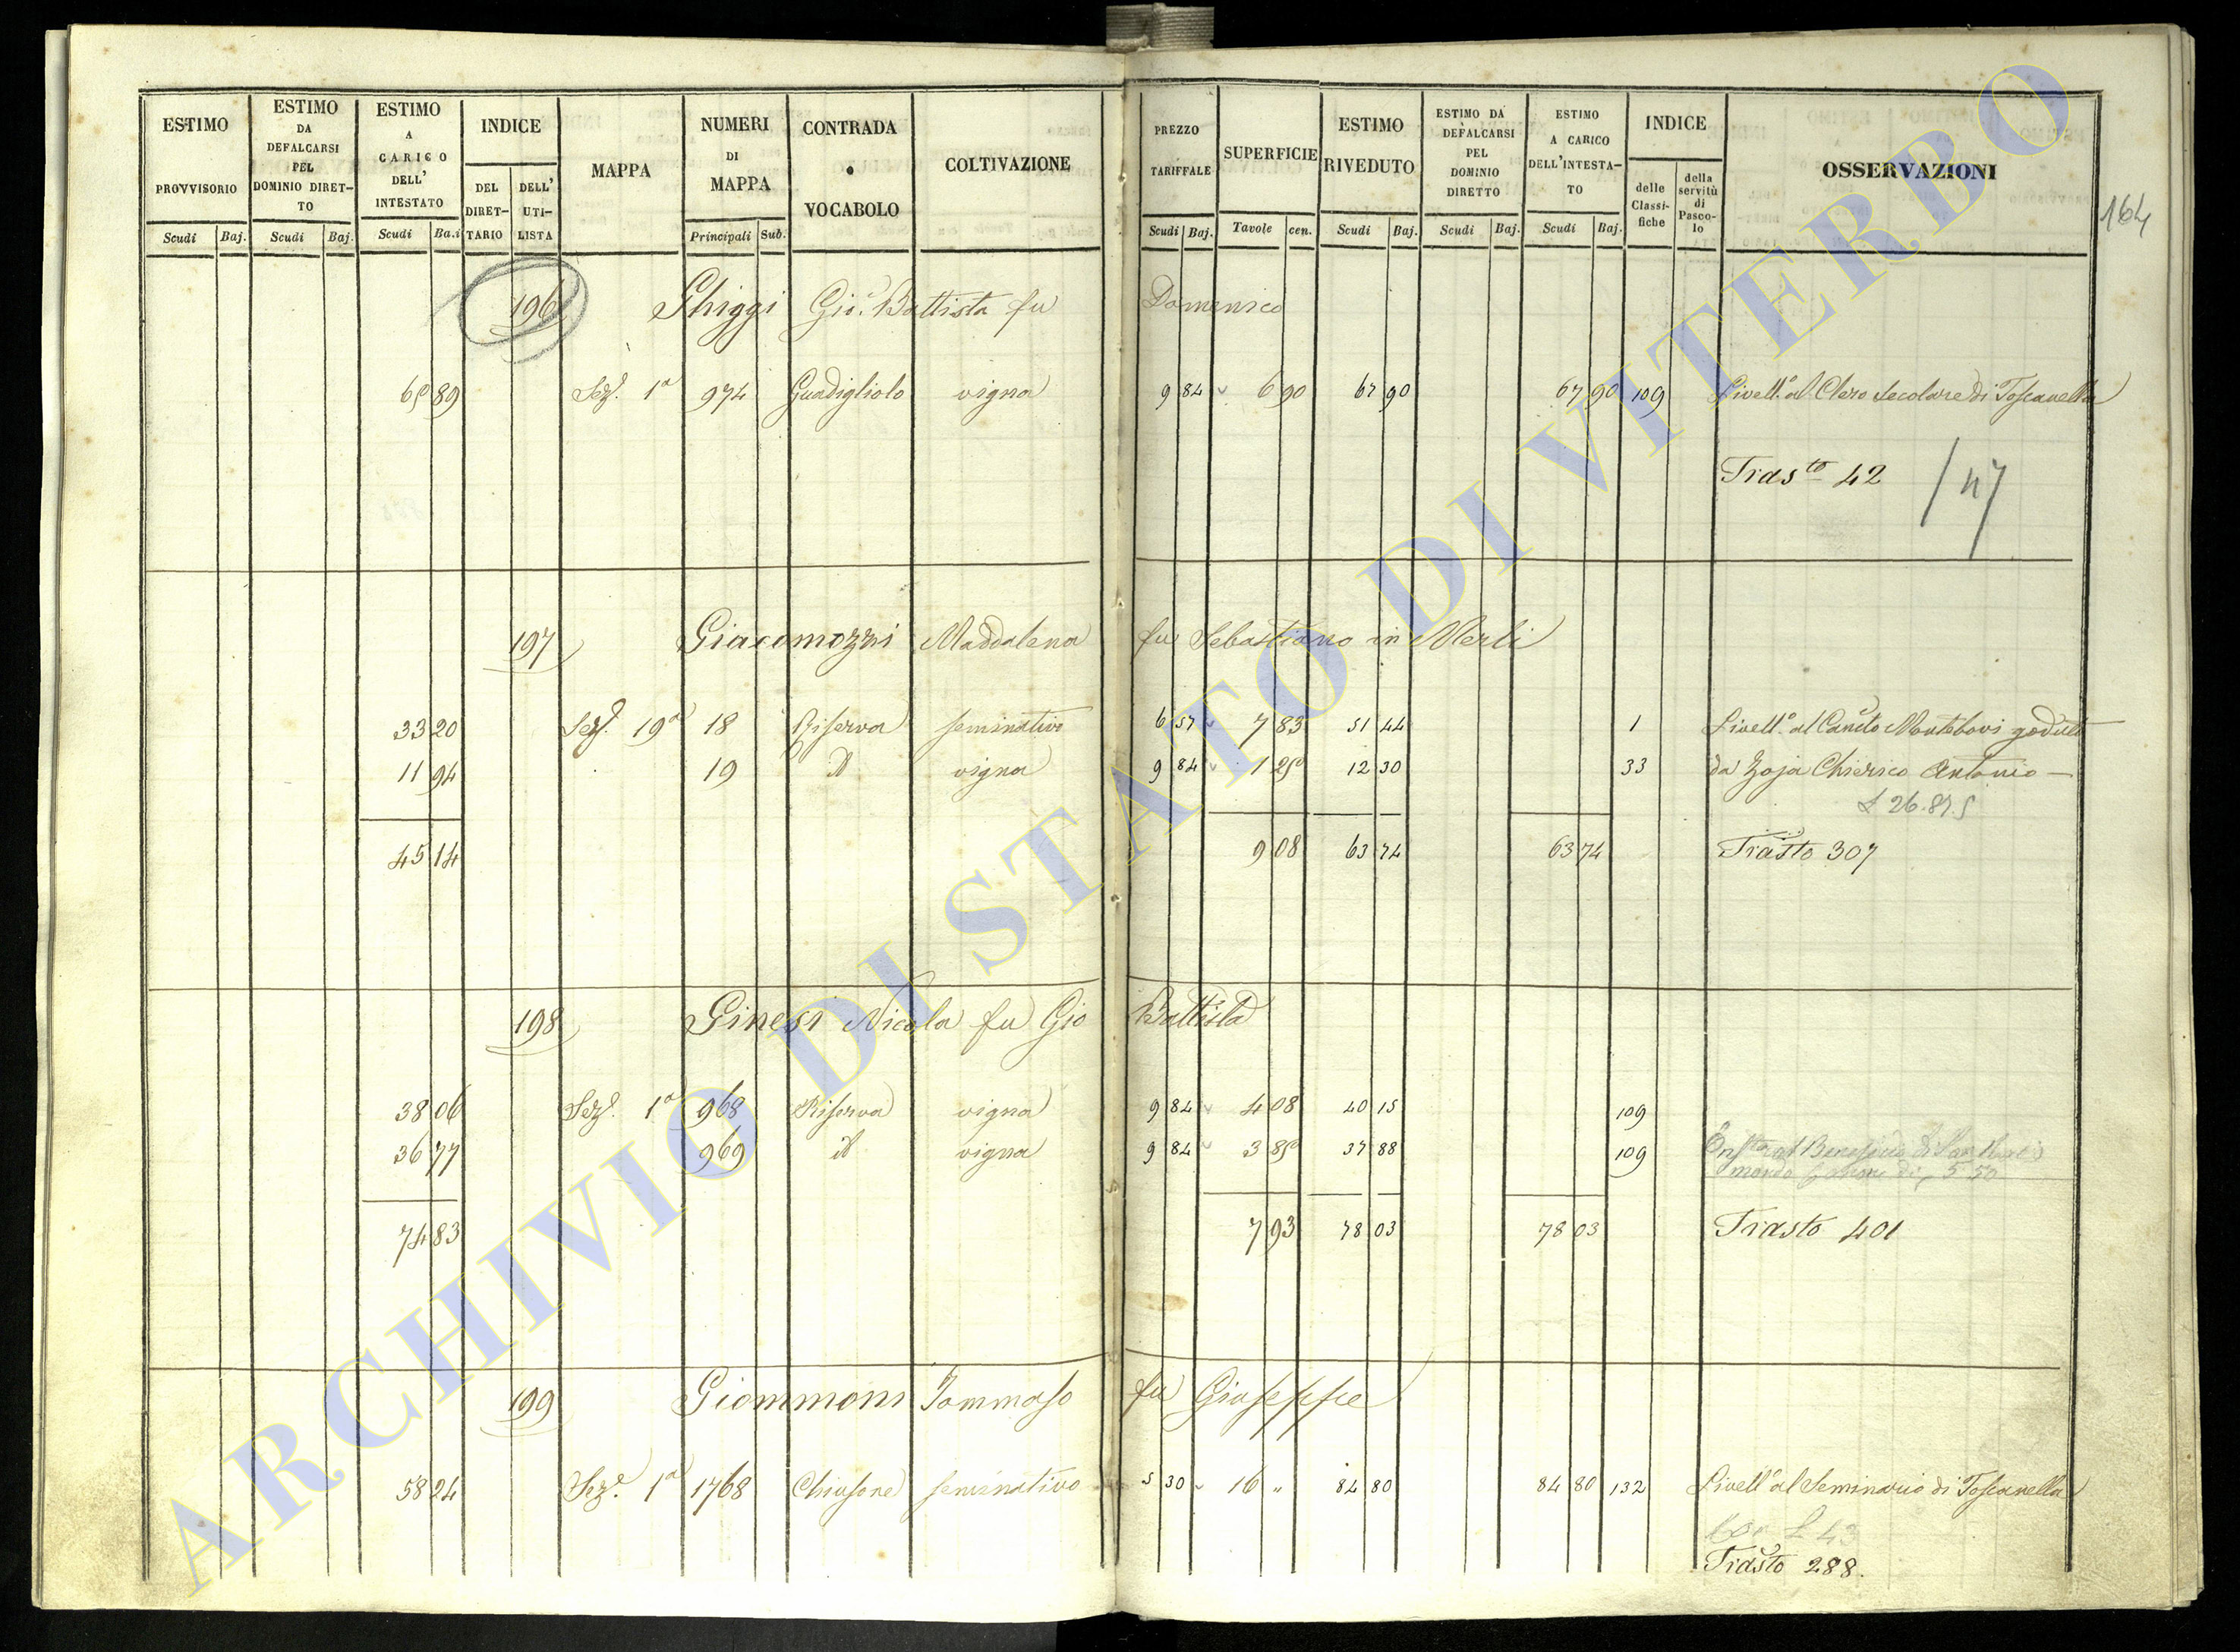 ESTIMO PROVVISORIO Scudi Baj.
ESTIMO DA DEFALCARSI PEL DOMINIO DIRET- TO Scudi Baj.
ESTIMO A CARICO DELL' INTESTATO Scudi Ba.i
INDICE DEL DIRET- TARIO DELL' UTI- LISTA
MAPPA
NUMERI DI MAPPA Principali Sub.
CONTRADA o VOCABOLO
COLTIVAZIONE
PREZZO TARIFFALE Scudi Baj.
SUPERFICIE Tavole cen.
ESTIMO RIVEDUTO Scudi Baj.
ESTIMO DA DEFALCARSI PEL DOMINIO DIRETTO Scudi Baj.
ESTIMO A CARICO DELL'INTESTA- TO Scudi Baj.
INDICE delle Classi- fiche della servitù di Pasco- lo
OSSERVAZIONI
164
196 Ghiggi Gio. Battista fu Domenico
89 Sez. 1a 974 Guadigliolo vigna 9 84 6 90 67 90 67 90 109 Livell.o al Clero Secolare di Toscanella
Trasto 42 / 47
197 Giacomozzi Maddalena fu Sebastiano in Merli
33 20 Sez. 19a 18 Riserva seminativo 6 57 7 83 51 44 1 Livell.o al Canto Montebovi goduto
11 94 19 vigna 9 84 1 25 12 30 33 da Zoja Chierico Antonio
£ 26.87.5
45 14 9 08 63 74 63 74 Trasto 307
198 Ginesi Nicola fu Gio Battista
38 06 Sez. 1a 968 Riserva vigna 9 84 4 08 40 15 109
36 77 969 vigna 9 84 3 85 37 88 109 al Beneficio di San
5 50
74 83 7 93 78 03 78 03 Trasto 401
199 Giommoni Tommaso fu Giuseppe
58 24 Sez. 1a 1768 Chiusone seminativo 5 30 16 " 84 80 84 80 132 Livell.o al Seminario di Toscanella
£ 43
Trasto 288.
ARCHIVIO DI STATO DI VITERBO